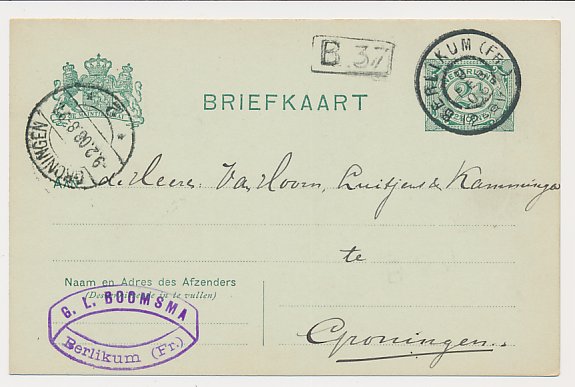 B. 37
BERLIKUM (FR.)
BRIEFKAART
GRONINGEN
Aan de Heeren Van Hoorn, Luitjens & Kamminga
te
Groningen.
Naam en Adres des Afzenders
G. L. BOOMSMA
Berlikum (Fr.)